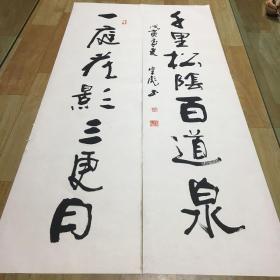 千里松陰百道泉
戊寅孟夏
书
一庭花影三更月